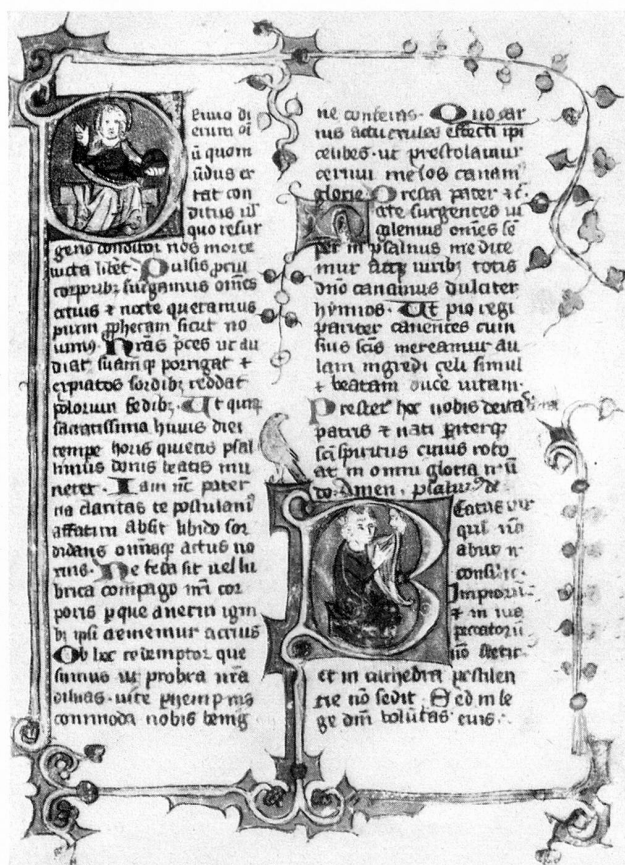 rimo di
erum oī
ū quom
ūdus ex
tat con
ditus ul
quo resur
gens conditor nos morte
uicta liberet. Pulsis procul
torporibꝫ surgamus omnes
ocius ⁊ nocte queramus
pium ꝓphetam sicut no
uimꝰ. Nras p̄ces ut au
diat suamqꝫ porrigat ⁊
expiatos sordibꝫ reddat
polorum sedibꝫ. Ut quiqꝫ
sacratissimo huius diei
tempe horis quietis psal
limus donis beatis mu
neret. Iam nc̄ pater
na claritas te postulamꝰ
affatim absit libido sor
didans omnisqꝫ actus no
xius. Ne feda sit uel lu
brica compago nri cor
poris ꝑ que auerni igni
bꝫ ipsi crememur acrius
Ob hoc redemptor que
sumus ut probra nra
diluas. uite ꝑhempnis
commoda nobis benig
ne conferas. Quo car
nis actu exules effecti ipi
celibes. ut prestolamur
cernui melos canamꝰ
glorie. Presta pater ⁊c̄.
octe surgentes ui
gilemus omēs sē
per in psalmis medite
mur atqꝫ uiribꝫ totis
dn̄o canamus dulciter
hymnos. Ut pio regi
pariter canentes cum
suis scīs mereamur au
lam ingredi celi simul
⁊ beatam ducere uitam.
Prestet hoc nobis deitas
patris ⁊ nati pariterqꝫ
scī spiritus cuius reso
at in omni gloria mū
do. Amen. psalmꝰ dd
Eatus uir
qui nō
abiit in
consilio
Impiorū
⁊ in uia
peccatorū
nō stetit
et in cathedra pestilen
tie nō sedit. Sed in le
ge dnī volūtas eius.